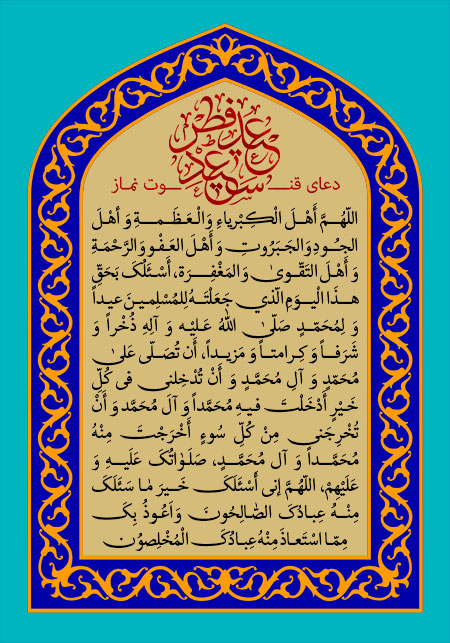 عید سعید فطر
دعای قنــوت نماز
اللّهُـمَّ أَهْـلَ الْـکِبْریاءِ وَالْـعَـظَـمـةِ وَ أَهلَ
الجُـودِ وَالجَبَرُوتِ وَ أَهْـلَ العَـفْـوِ وَالرَّحْمَةِ
وَ أَهْـلَ التَّقْـویٰ وَ المَغْـفِـرَة، أَسْـئَلُکَ بَحَقّ
هـذا الْـیَـومِ الَّذي جَعَلْتَـهُ لِلمُسْلِمینَ عیداً
وَ لِمُحَمّـدٍ صَلّیٰ اللهُ عَلَیْـه وَ آلِهِ ذُخْراً وَ
شَرَفـاً وَ کِرامتـاً وَ مَزیـداً، أَن تُصَلّی عَلیٰ
مُحمّدٍ وَ آلِ مُحَمَّدٍ وَ أَنْ تُدْخِلنی فی کُلِّ
خَیْرٍ أَدْخَلْتَ فیـهِ مُحَمَّداً وَ آلَ مُحَمَّد وَ أَنْ
تُخْرِجَنی مِنْ کُلّ سُوءٍ أَخْرَجْتَ مِنْـهُ
مُحَمَّـداً وَ آل مُحَمَّـدٍ، صَلَواتُکَ عَلَیهِ وَ
عَلَیْهِمْ، اللّهُمَّ إنی أَسْئَلُکَ خَیـرَ مٰا سَئَلَکَ
مِنْـهُ عِبادُکَ الصّٰالِحُونَ وَ اَعُوذُ بِکَ
مِمّا اسْتَعاذَ مِنْهُ عِبادُکَ الْمُخْلِصوُن